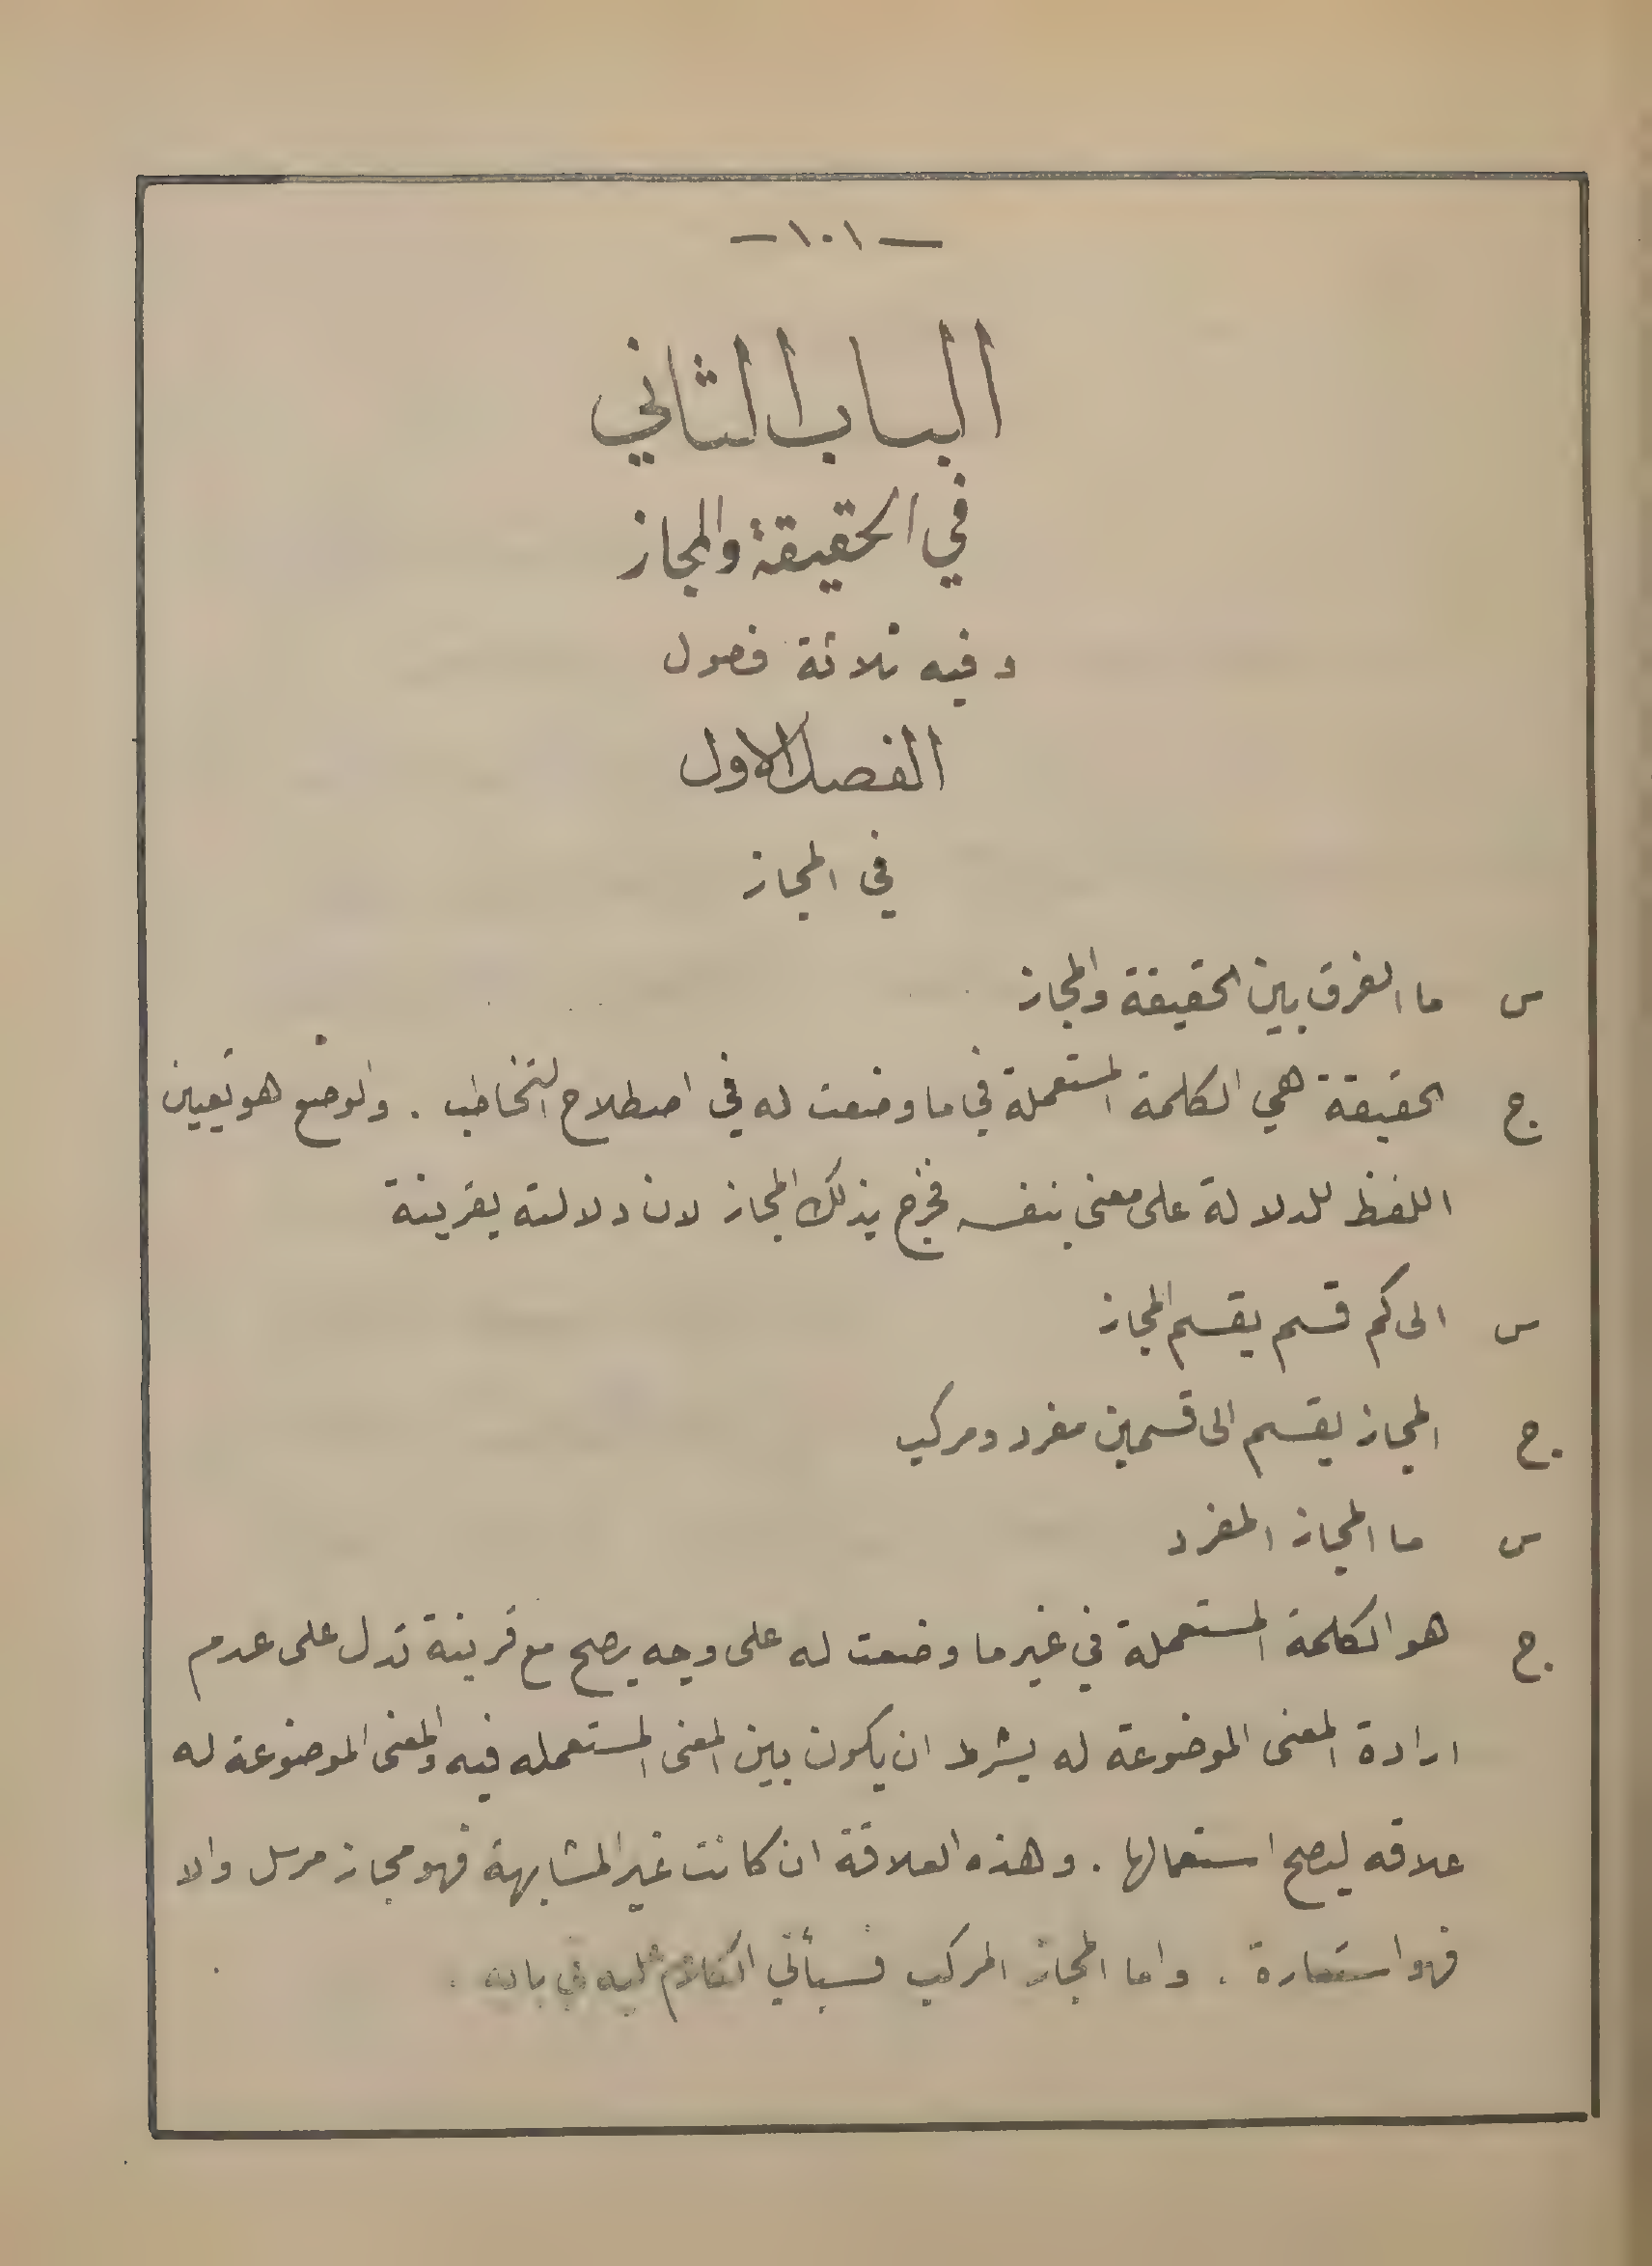 — ١٠١ —
الباب الثاني
في الحقيقة والمجاز
وفيه ثلاثة فصول
الفصل الاول
في المجاز
س ما الفرق بين الحقيقة والمجاز
ج الحقيقة هي الكلمة المستعملة في ما وضعت له في اصطلاح التخاطب . والوضع هو تعيين
اللفظ للدلالة على معنى بنفسه فخرج بذلك المجاز لان دلالته بقرينة
س الى كم قسم يقسم المجاز
ج. المجاز يقسم الى قسمين مفرد ومركب
س ما المجاز المفرد
ج. هو الكلمة المستعملة في غير ما وضعت له على وجه يصح مع قرينة تدل على عدم
ارادة المعنى الموضوعة له يشرط ان يكون بين المعنى المستعمله فيه والمعنى الموضوعة له
علاقه ليصح استعمالها . وهذه العلاقة ان كانت غير المشابهة فهو مجاز مرسل والا
فهو استعارة . واما المجاز المركب فسيأتي الكلام عليه في بابه .